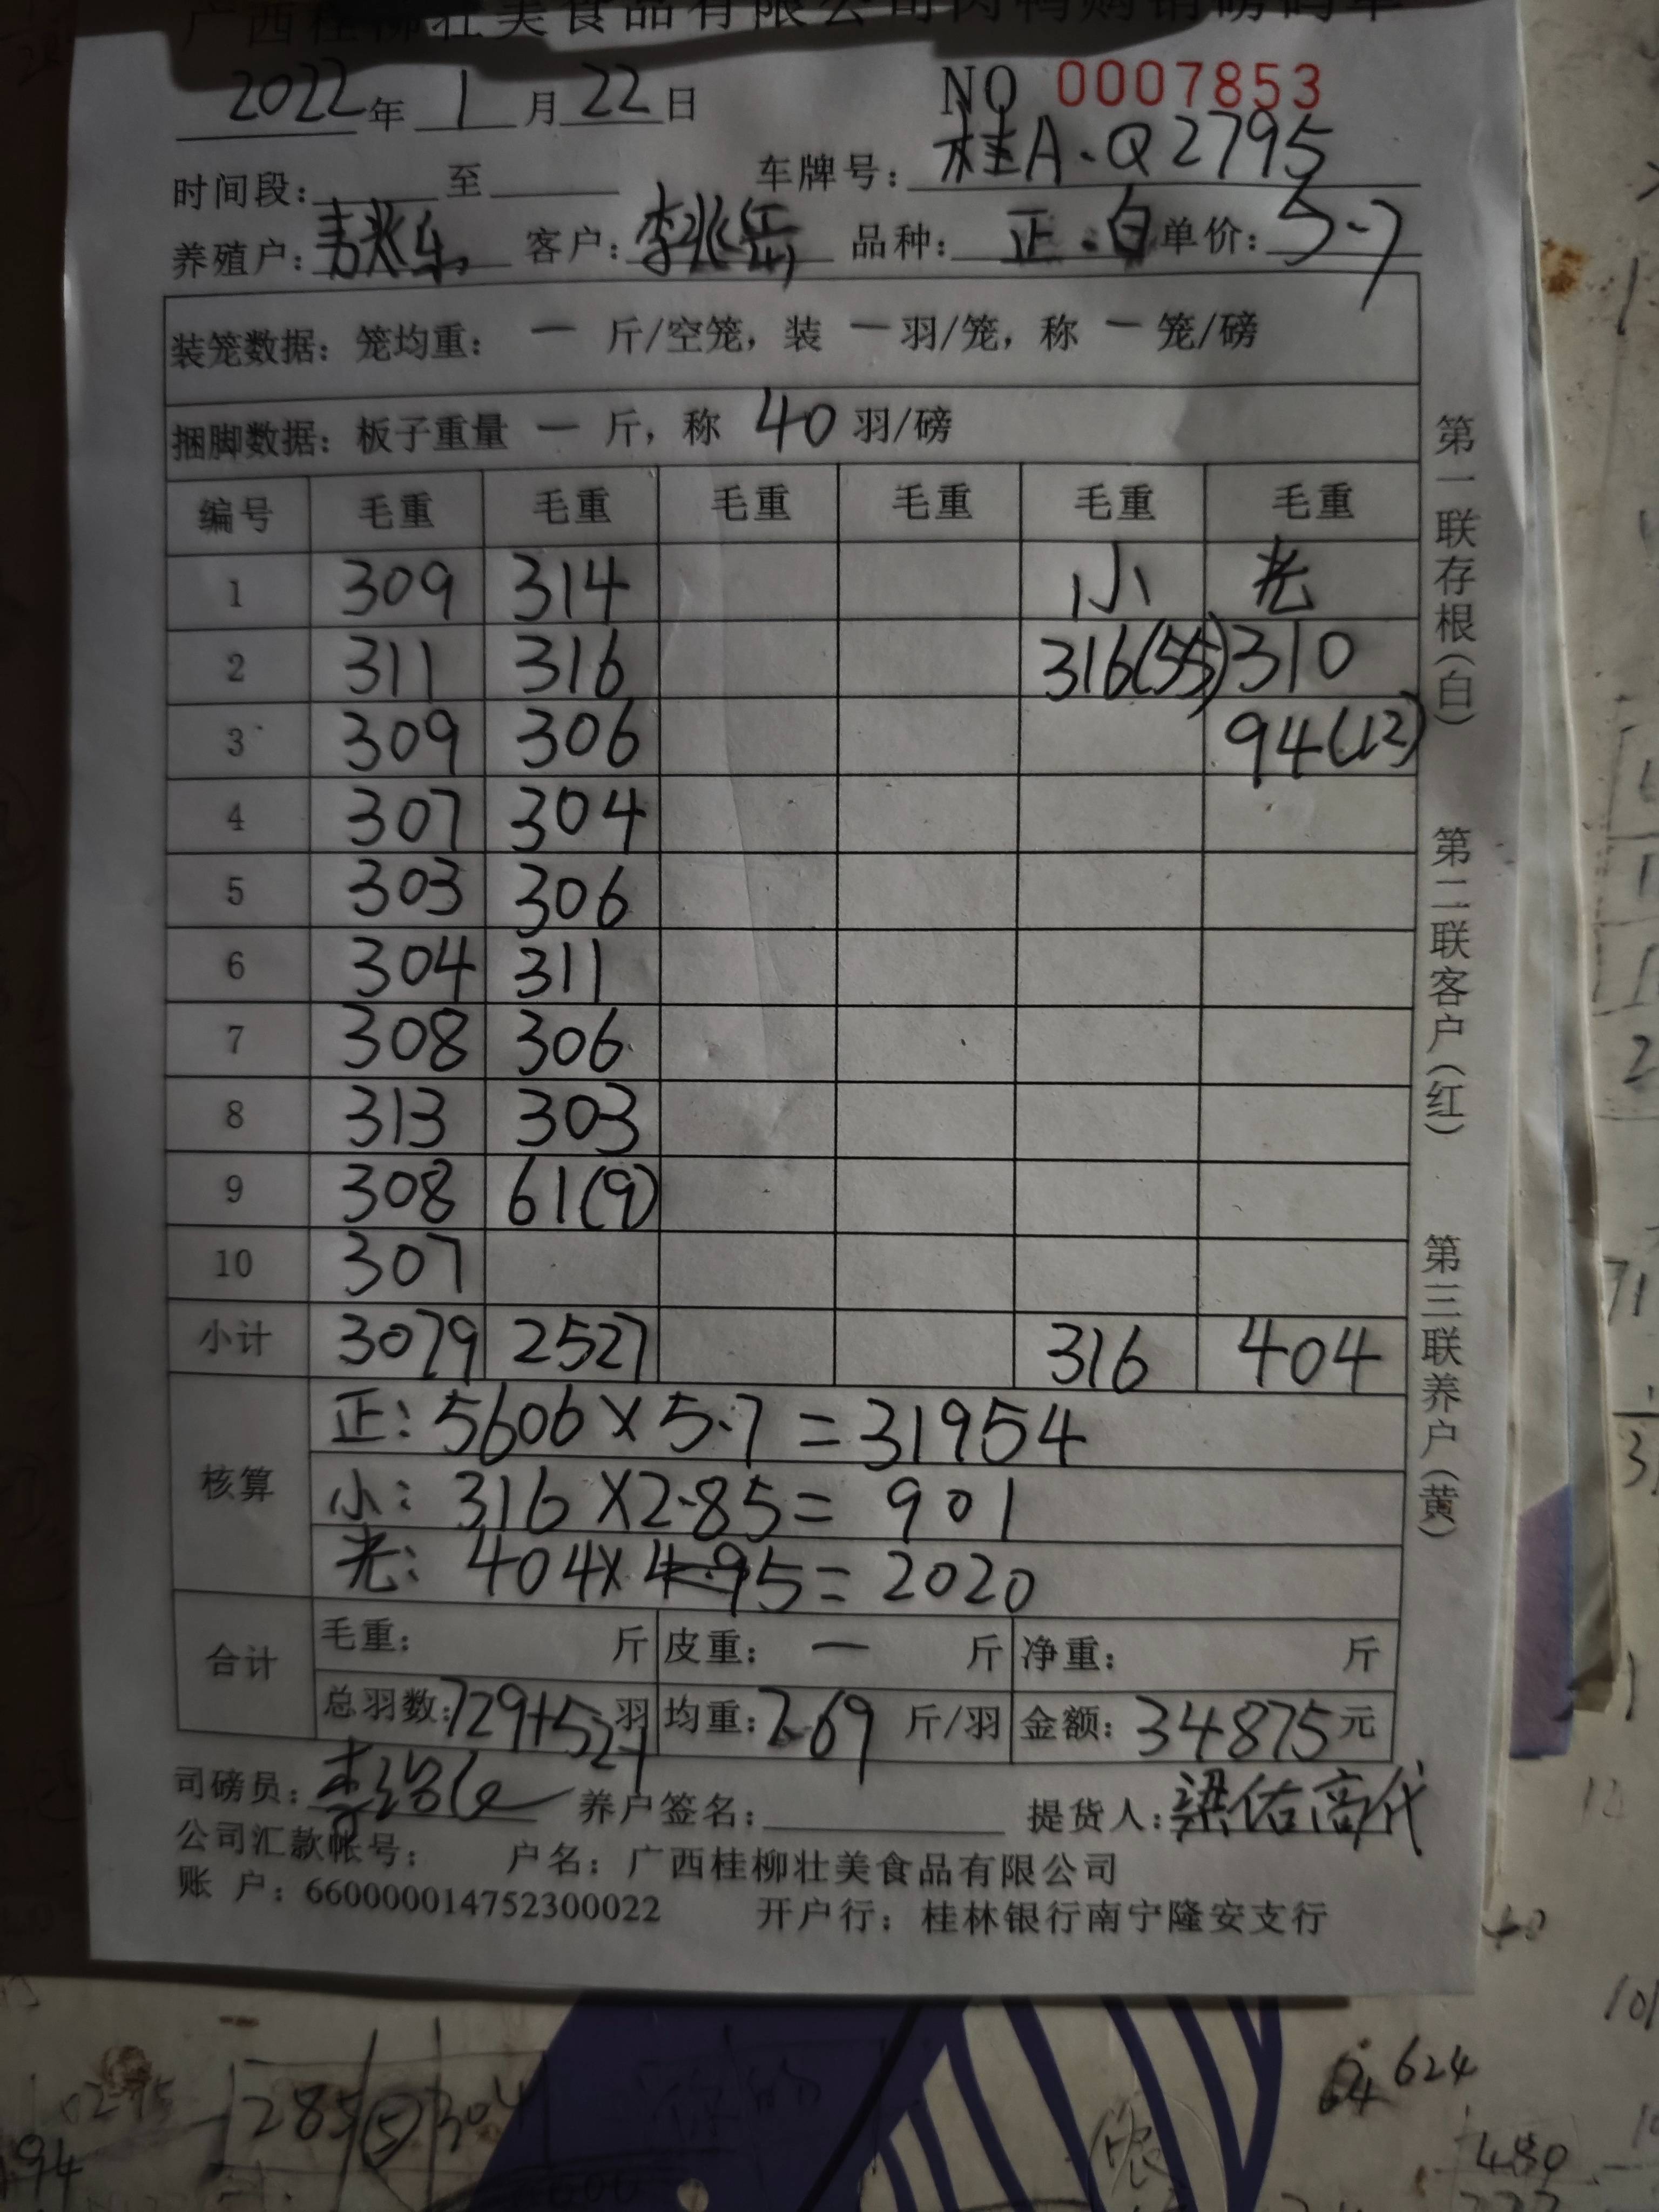 广西桂柳壮美食品有限公司肉鸭购销磅码单
2022年 1月22日 NO 0007853
时间段: 至 车牌号: 桂A·Q2795
养殖户: 客户: 品种: 正·白 单价: 5.7
装笼数据: 笼均重: 一 斤/空笼, 装 一 羽/笼, 称 一 笼/磅
捆脚数据: 板子重量 一 斤, 称 40 羽/磅
编号 毛重 毛重 毛重 毛重 毛重 毛重
1 309 314 小 光
2 311 316 316(55) 310
3 309 306 94(12)
4 307 304
5 303 306
6 304 311
7 308 306
8 313 303
9 308 61(9)
10 307
小计 3079 2527 316 404
核算
正: 5606×5.7=31954
小: 316×2.85=901
光: 404× 5=2020
合计
毛重: 斤 皮重: 一 斤 净重: 斤
总羽数: 729+52 羽 均重: 7.69 斤/羽 金额: 34875元
司磅员: 养户签名: 提货人: 梁佑高代
公司汇款帐号: 户名: 广西桂柳壮美食品有限公司
账 户: 660000014752300022 开户行: 桂林银行南宁隆安支行
第一联存根(白)
第二联客户(红)
第三联养户(黄)
285 ⑤ 304
94
624
480